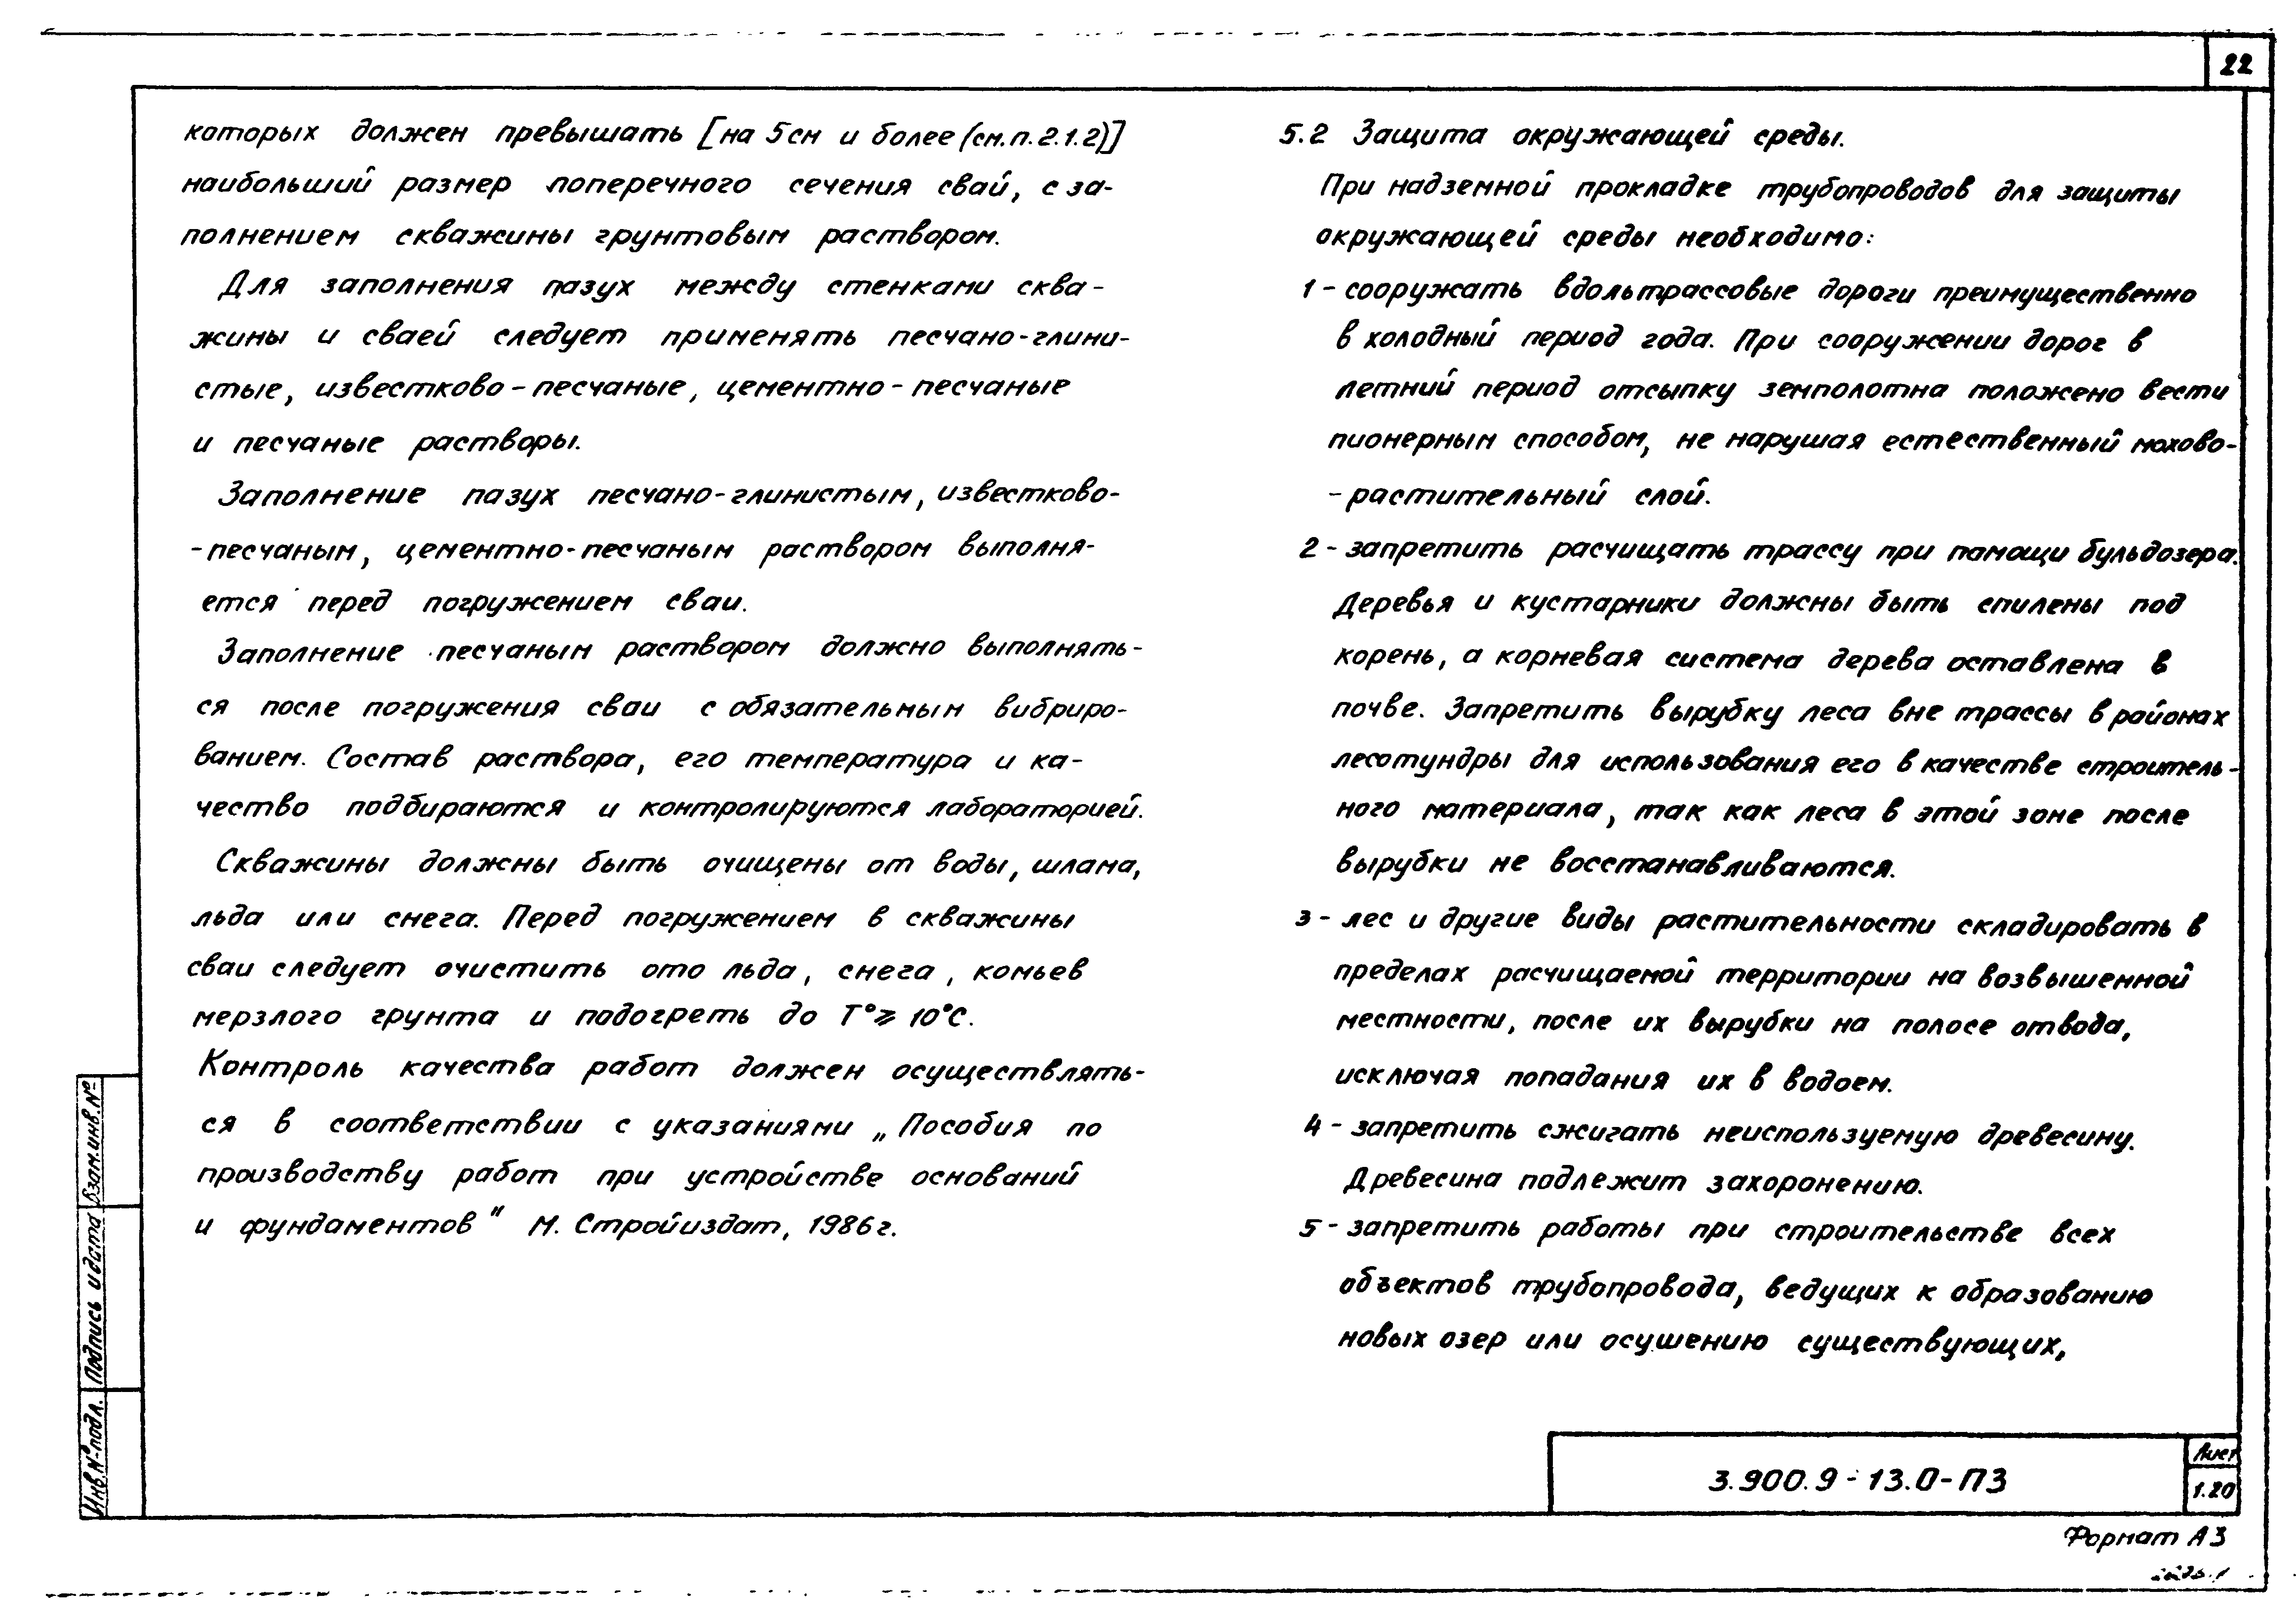 22
которых должен превышать [на 5см и более (см.п.2.1.2)]
наибольший размер поперечного сечения свай, с за-
полнением скважины грунтовым раствором.
Для заполнения пазух между стенками сква-
жины и сваей следует применять песчано-глини-
стые, известково-песчаные, цементно-песчаные
и песчаные растворы.
Заполнение пазух песчано-глинистым, известково-
-песчаным, цементно-песчаным раствором выполня-
ется перед погружением сваи.
Заполнение песчаным раствором должно выполнять-
ся после погружения сваи с обязательным вибриро-
ванием. Состав раствора, его температура и ка-
чество подбираются и контролируются лабораторией.
Скважины должны быть очищены от воды, шлама,
льда или снега. Перед погружением в скважины
сваи следует очистить ото льда, снега, комьев
мерзлого грунта и подогреть до T°⩾ 10°C.
Контроль качества работ должен осуществлять-
ся в соответствии с указаниями „Пособия по
производству работ при устройстве оснований
и фундаментов" М. Стройиздат, 1986г.
5.2 Защита окружающей среды.
При надземной прокладке трубопроводов для защиты
окружающей среды необходимо:
1 - сооружать вдольтрассовые дороги преимущественно
в холодный период года. При сооружении дорог в
летний период отсыпку земполотна положено вести
пионерным способом, не нарушая естественный мохово-
-растительный слой.
2 - запретить расчищать трассу при помощи бульдозера.
Деревья и кустарники должны быть спилены под
корень, а корневая система дерева оставлена в
почве. Запретить вырубку леса вне трассы в районах
лесотундры для использования его в качестве строитель-
ного материала, так как леса в этой зоне после
вырубки не восстанавливаются.
3 - лес и другие виды растительности складировать в
пределах расчищаемой территории на возвышенной
местности, после их вырубки на полосе отвода,
исключая попадания их в водоем.
4 - запретить сжигать неиспользуемую древесину.
Древесина подлежит захоронению.
5 - запретить работы при строительстве всех
объектов трубопровода, ведущих к образованию
новых озер или осушению существующих,
Взам.инв.№
Подпись и дата
Инв.№подл.
3.900.9-13.0-ПЗ
Лист
1.20
Формат А3